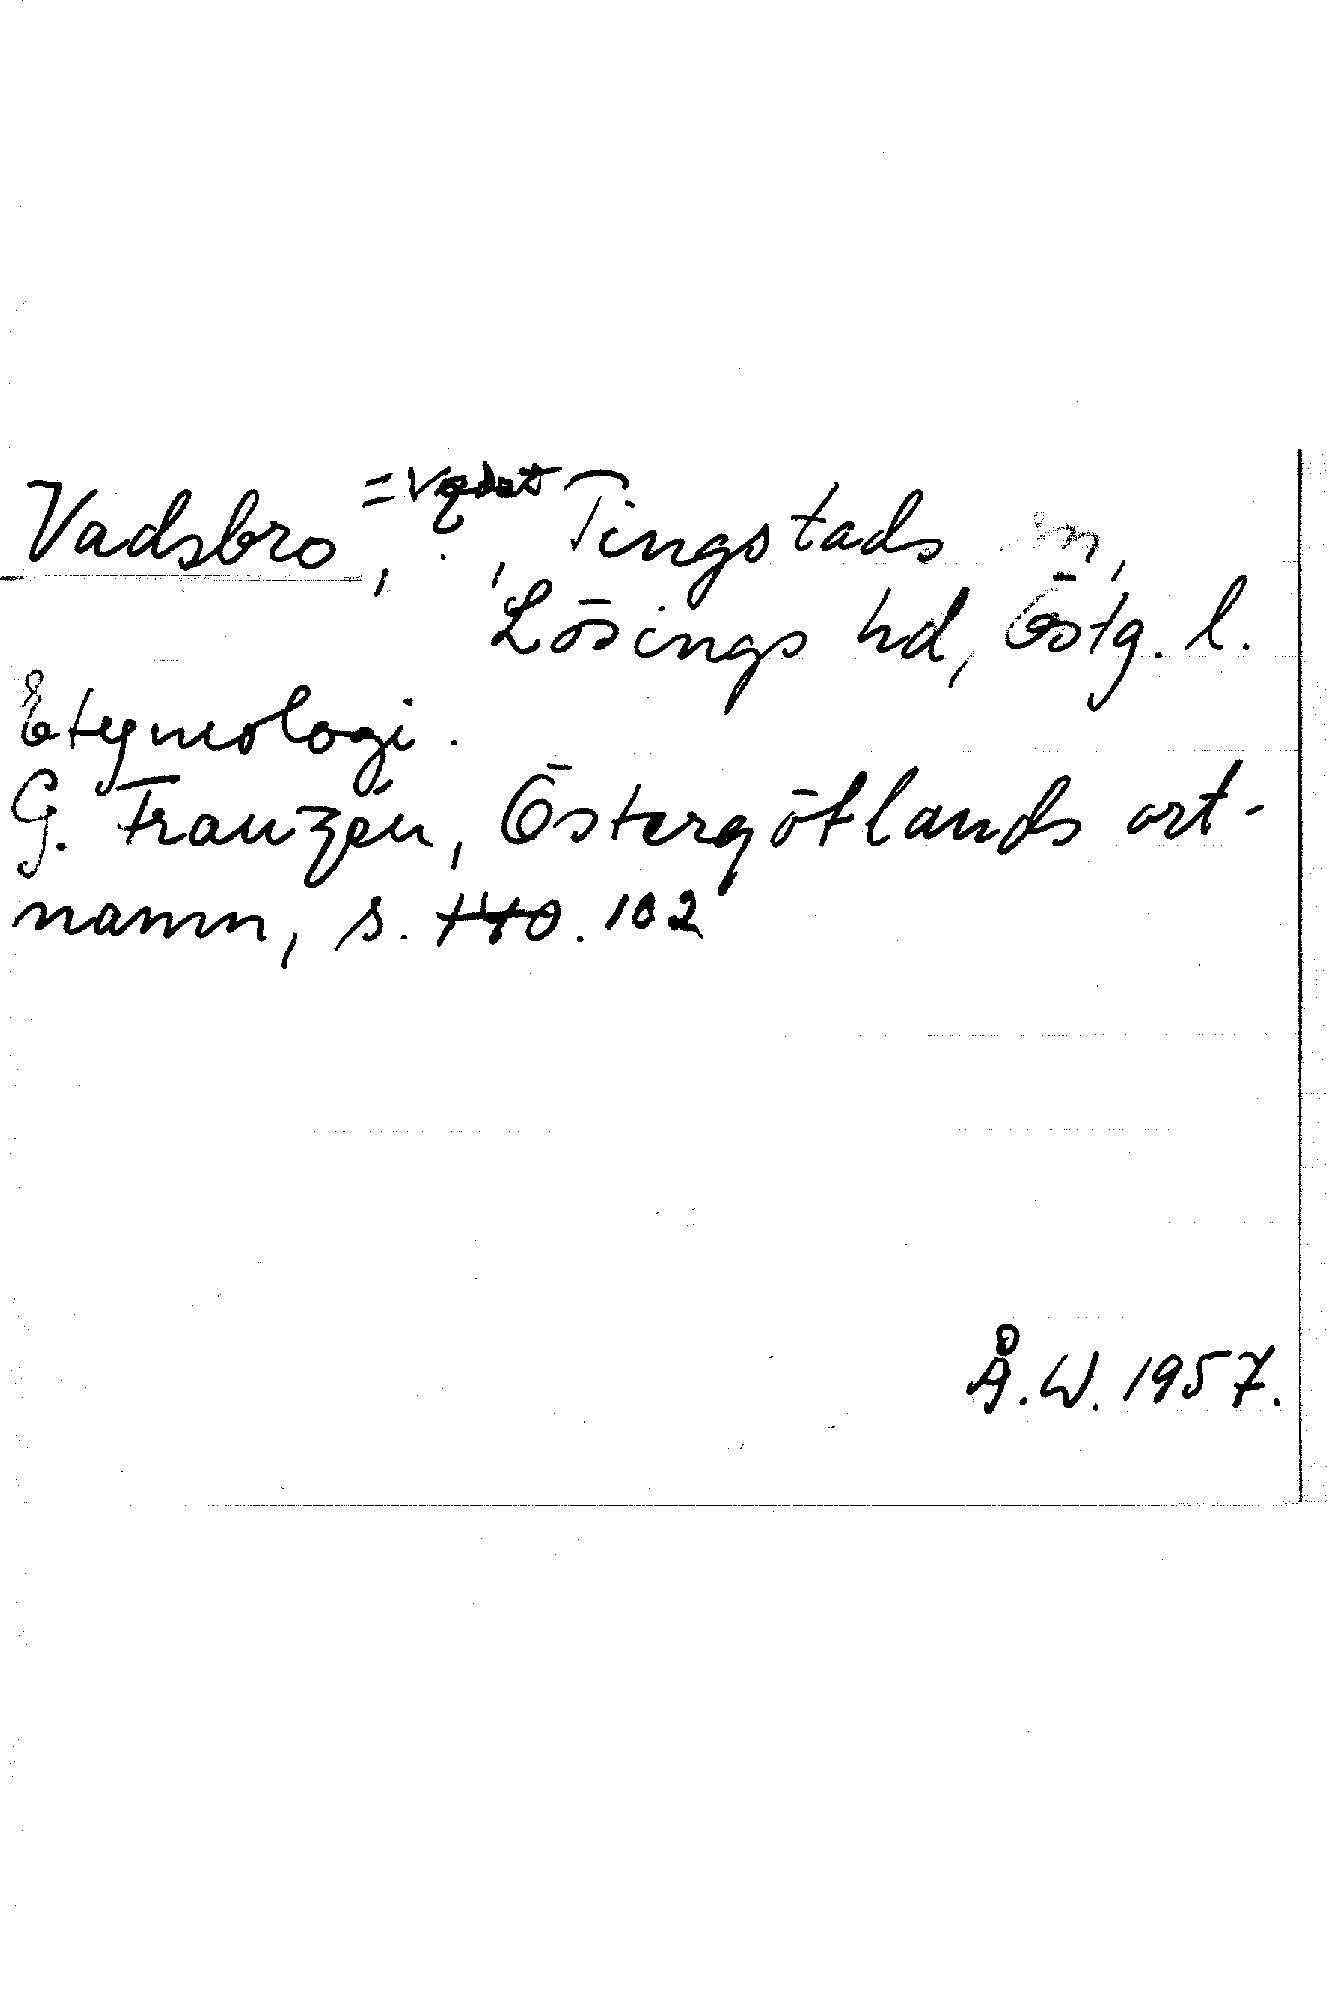 Vadsbro, Tingstads sn,
Lösings hd, Östg. l.
Etymologi.
G. Franzén, Östergötlands ort-
namn, s. 140. 102
Å.W. 1957.